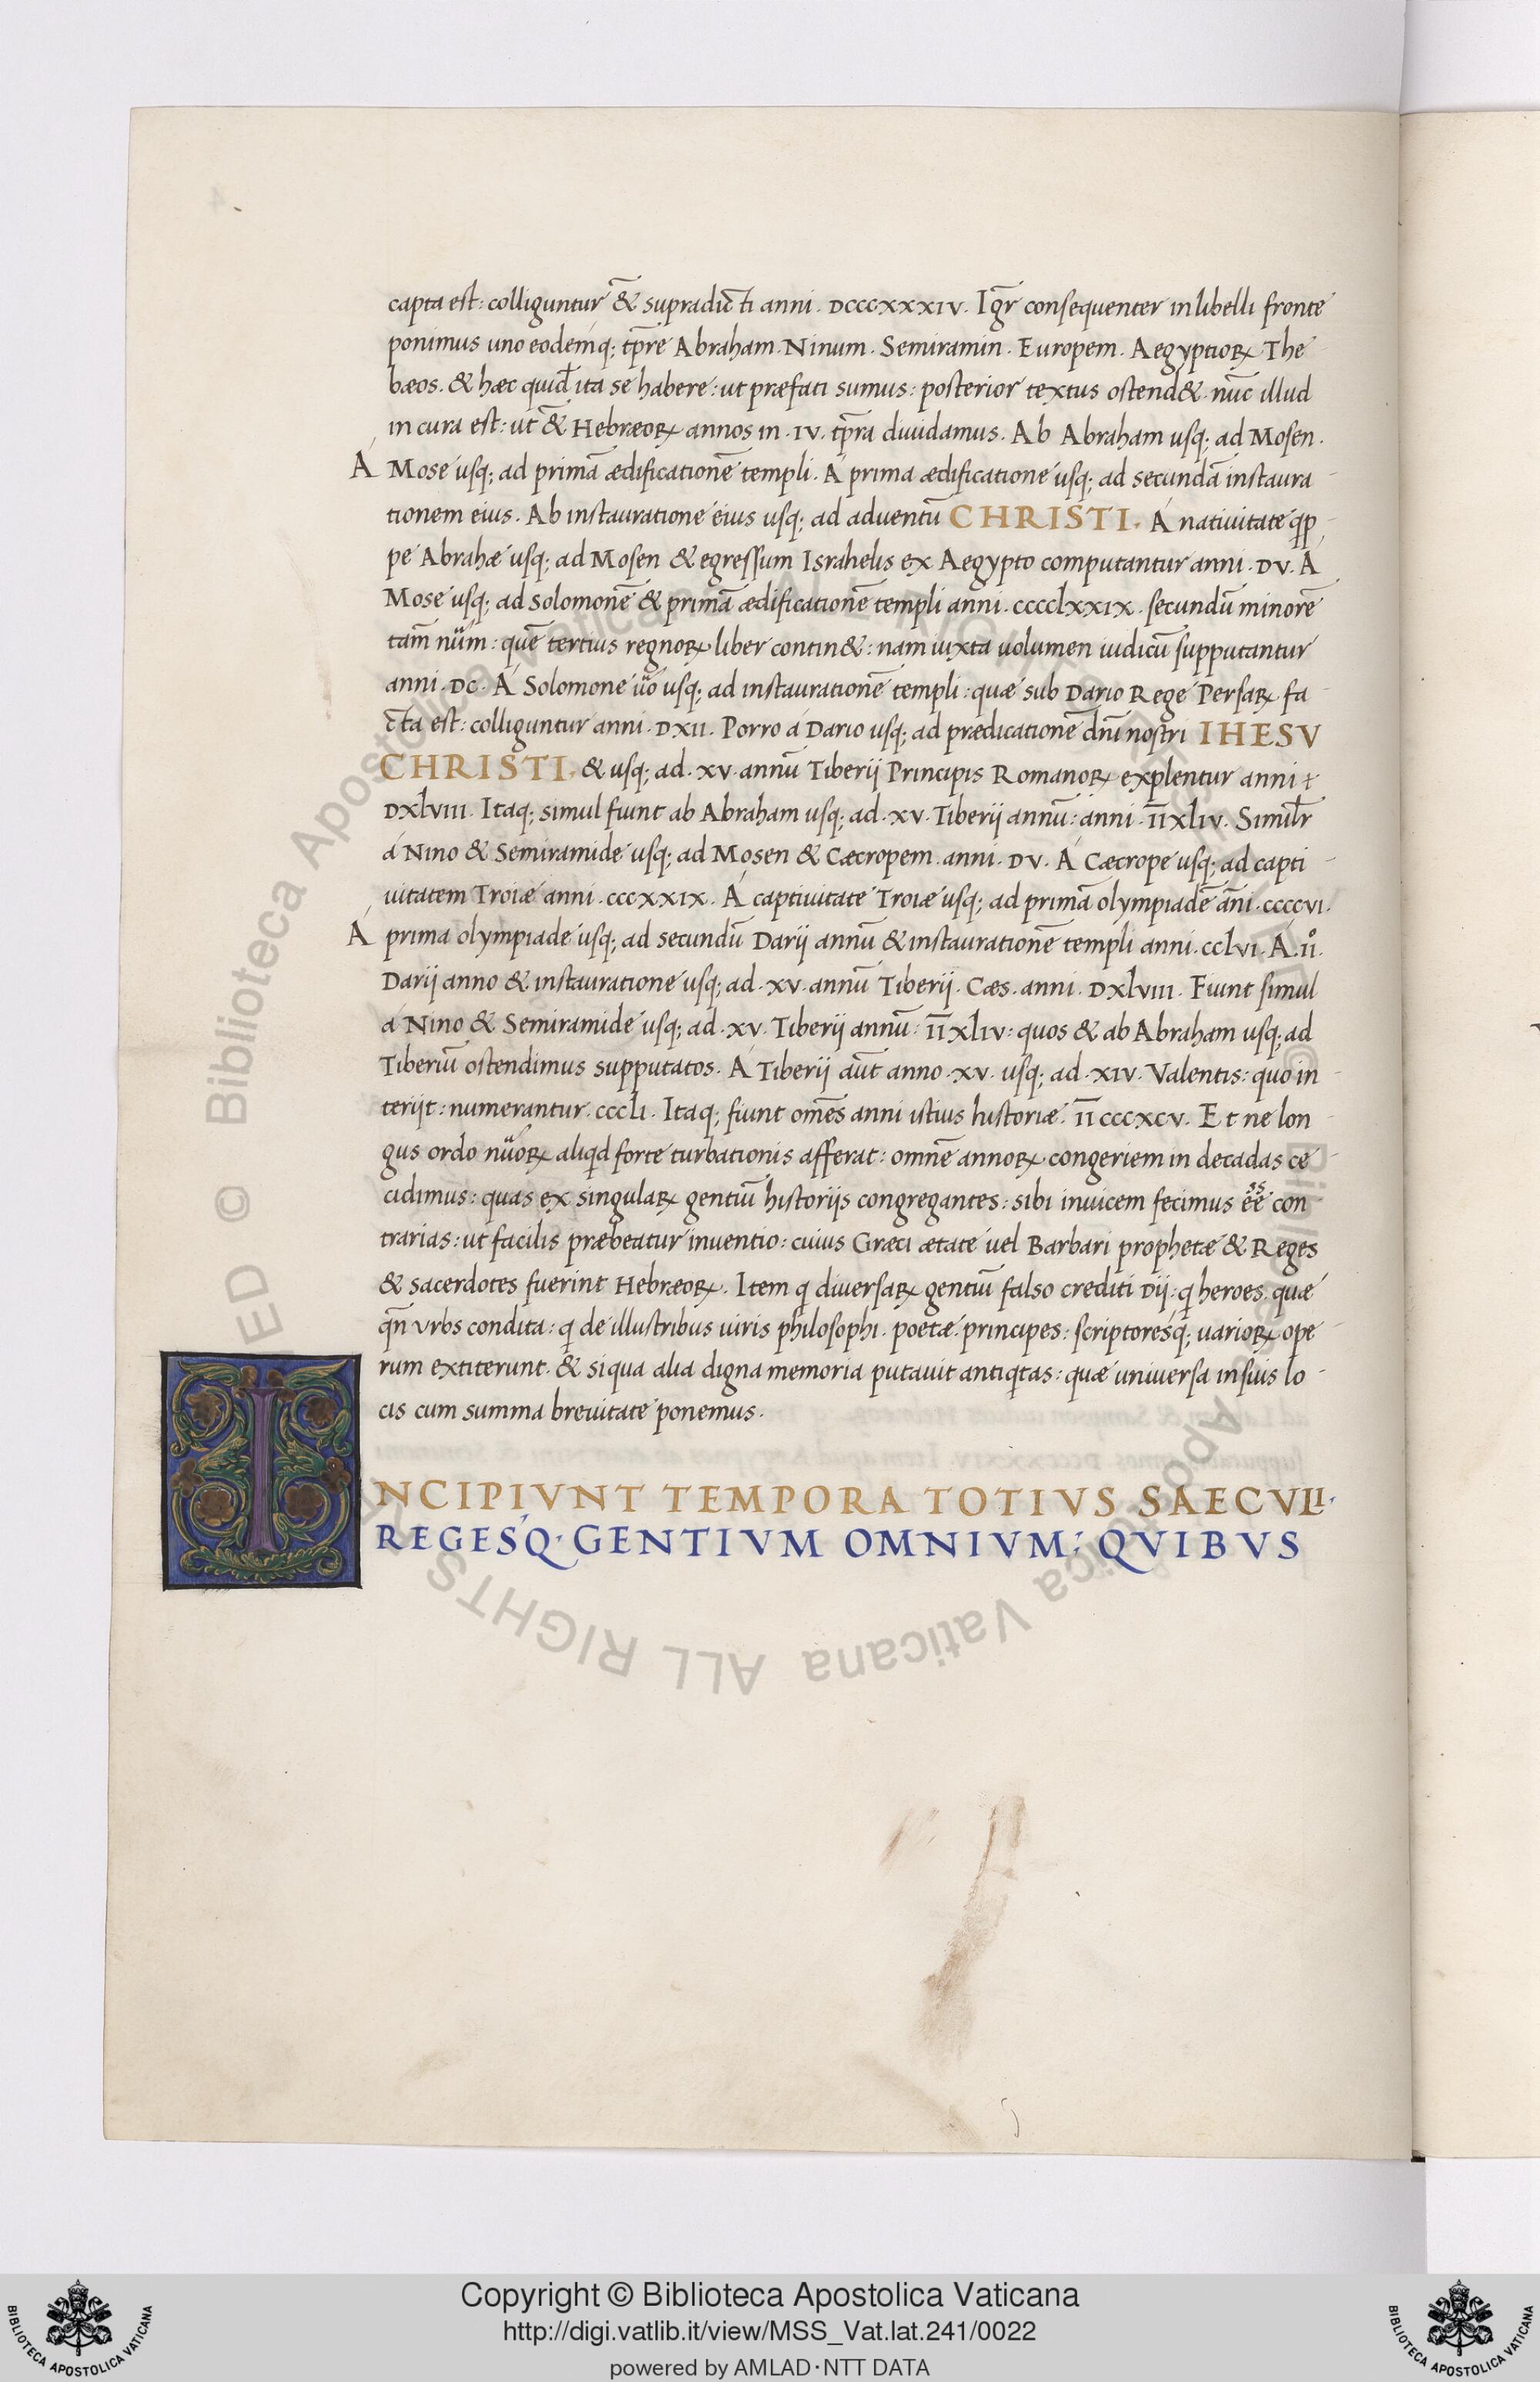 capta est: colliguntur & supradicti anni. DCCCXXXIV. Igr̄ consequenter in libelli fronte
ponimus uno eodemq; tp̄re Abraham. Ninum. Semiramin. Europem. Aegyptioꝝ The
bæos. & hæc quid̄ ita se habere: ut præfati sumus: posterior textus ostend&. nūc illud
in cura est: ut & Hebræoꝝ annos in. IV. tp̄ra diuidamus. Ab Abraham usq; ad Mosen.
Á Mose usq; ad primā ædificationē templi. Á prima ædificatione usq; ad secundā instaura
tionem eius. Ab instauratione eius usq; ad aduentū CHRISTI. Á natiuitate qp
pe Abrahæ usq; ad Mosen & egressum Israhelis ex Aegypto computantur anni. DV. Á
Mose usq; ad Solomonē & primā ædificationē templi anni. CCCCLXXIX. secundū minorē
tam̄ nūm: quē tertius regnoꝝ liber contin&: nam iuxta uolumen iudicū supputantur
anni. DC. Á Solomone ūo usq; ad instaurationē templi: quæ sub Dario Rege Persaꝝ fa
cta est: colliguntur anni. DXII. Porro á Dario usq; ad prædicationē dn̄i nostri IHESV
CHRISTI. & usq; ad. XV. annū Tiberij Principis Romanoꝝ explentur anni
DXLVIII. Itaq; simul fiunt ab Abraham usq; ad. XV. Tiberij annū: anni. IIXLIV. Simil̄r
á Nino & Semiramide usq; ad Mosen & Cæcropem. anni. DV. Á Cæcrope usq; ad capti
uitatem Troiæ anni. CCCXXIX. Á captiuitate Troiæ usq; ad primā olympiadē an̄i. CCCCVI.
Á prima olympiade usq; ad secundū Darij annū & instaurationē templi anni. CCLVI. A. IIº.
Darij anno & instauratione usq; ad. XV. annū Tiberij. Cæs. anni. DXLVIII. Fiunt simul
á Nino & Semiramide usq; ad. XV. Tiberij annū: IIXLIV: quos & ab Abraham usq; ad
Tiberiū ostendimus supputatos. Á Tiberij aūt anno. XV. usq; ad. XIV. Valentis: quo in
terijt: numerantur. CCCLI. Itaq; fiunt om̄es anni istius historiæ. IICCCXCV. Et ne lon
gus ordo nūoꝝ aliqd forte turbationis afferat: omnē annoꝝ congeriem in decadas cę
cidimus: quas ex singulaꝝ gentiū historijs congregantes: sibi inuicem fecimus eē con
trarias: ut facilis præbeatur inuentio: cuius Græci ætate uel Barbari prophetæ & Reges
& sacerdotes fuerint Hebræoꝝ. Item q diuersaꝝ gentiū falso crediti Dij: q heroes. quæ
qn̄ Vrbs condita: q de illustribus uiris philosophi. poetæ. principes: scriptoresq; uarioꝝ ope
rum extiterunt. & siqua alia digna memoria putauit antiqtas: quæ uniuersa in suis lo
cis cum summa breuitate ponemus.
INCIPIVNT TEMPORA TOTIVS SAECVLI.
REGESQ. GENTIVM OMNIVM: QVIBVS
© Biblioteca Apostolica Vaticana ALL RIGHTS RESERVED
Copyright © Biblioteca Apostolica Vaticana
http://digi.vatlib.it/view/MSS_Vat.lat.241/0022
powered by AMLAD·NTT DATA
BIBLIOTECA APOSTOLICA VATICANA
BIBLIOTECA APOSTOLICA VATICANA